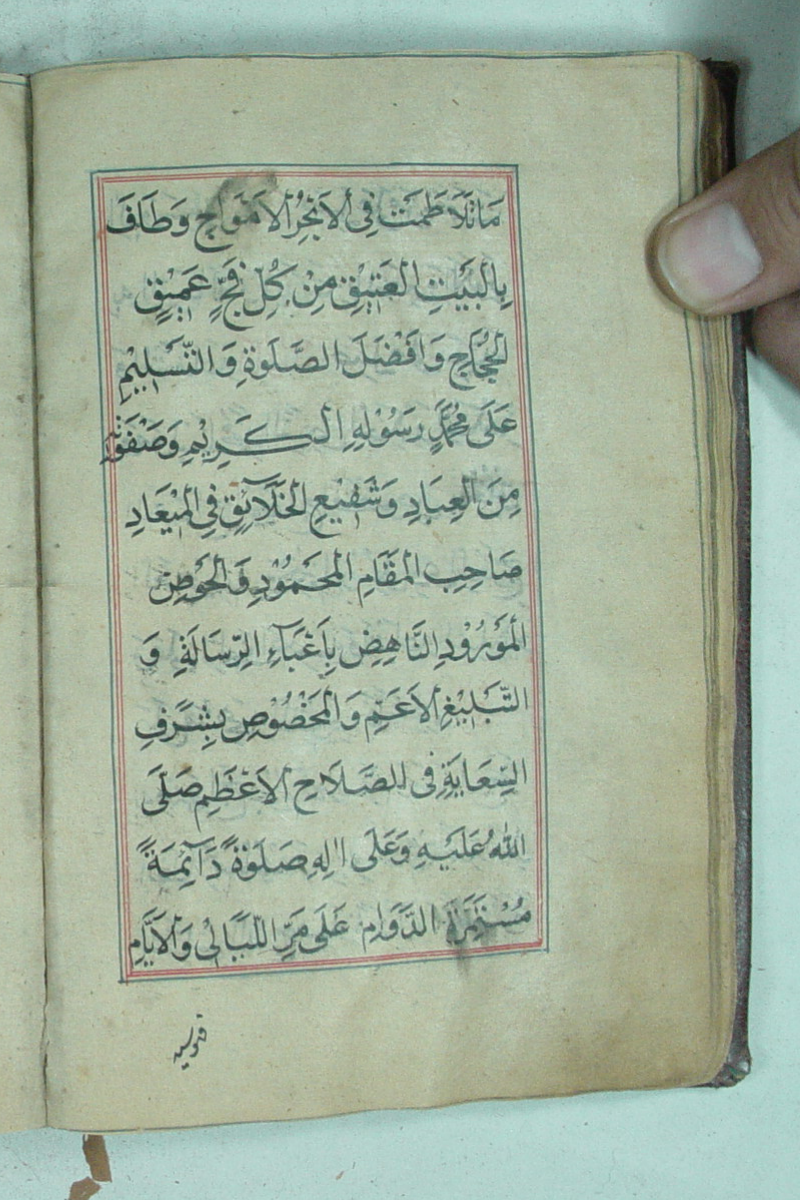 مَاتَلَاطَمَتْ فِى الْاَبْحُرِ الْاَمْوَاجُ وَطَافَ
بِالْبَيْتِ الْعَتِيْقِ مِنْ كُلِّ فَجٍّ عَمِيْقٍ
الْحُجَّاجُ وَاَفْضَلَ الصَّلٰوةِ وَالتَّسْلِيْمِ
عَلٰى مُحَمَّدٍ رَسُوْلِهِ الْكَرِيْمِ وَصَفْوَتِهٖ
مِنَ الْعِبَادِ وَشَفِيْعِ الْخَلَآئِقِ فِى الْمِيْعَادِ
صَاحِبِ الْمَقَامِ الْمَحْمُوْدِ وَالْحَوْضِ
الْمَوْرُوْدِ النَّاهِضِ بِاَعْبَآءِ الرِّسَالَةِ وَ
التَّبْلِيْغِ الْاَعَمِّ وَالْمَخْصُوْصِ بِشَرَفِ
السِّعَايَةِ فِى الصَّلَاحِ الْاَعْظَمِ صَلَّى
اللّٰهُ عَلَيْهِ وَعَلٰى اٰلِهٖ صَلٰوةً دَآئِمَةً
مُسْتَمِرَّةَ الدَّوَامِ عَلٰى مَرِّ اللَّيَالِىْ وَالْاَيَّامِ